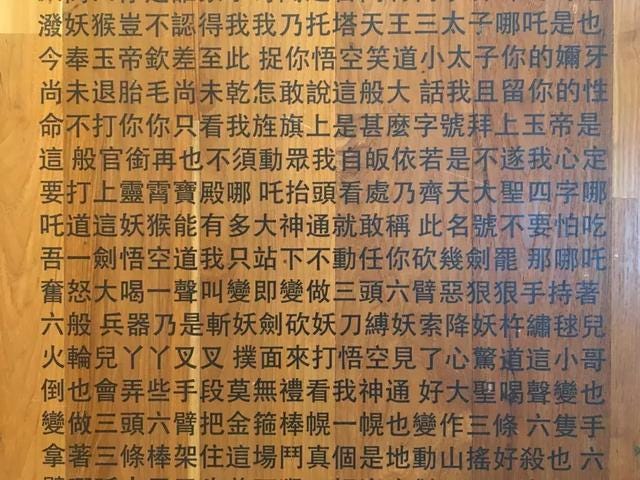 潑妖猴豈不認得我我乃托塔天王三太子哪吒是也
今奉玉帝欽差至此 捉你悟空笑道小太子你的嬭牙
尚未退胎毛尚未乾怎敢說這般大 話我且留你的性
命不打你你只看我旌旗上是甚麼字號拜上玉帝是
這 般官銜再也不須動眾我自皈依若是不遂我心定
要打上靈霄寶殿哪 吒抬頭看處乃齊天大聖四字哪
吒道這妖猴能有多大神通就敢稱 此名號不要怕吃
吾一劍悟空道我只站下不動任你砍幾劍罷 那哪吒
奮怒大喝一聲叫變即變做三頭六臂惡狠狠手持著
六般 兵器乃是斬妖劍砍妖刀縛妖索降妖杵繡毬兒
火輪兒丫丫叉叉 撲面來打悟空見了心驚道這小哥
倒也會弄些手段莫無禮看我神通 好大聖喝聲變也
變做三頭六臂把金箍棒幌一幌也變作三條 六隻手
拿著三條棒架住這場鬥真個是地動山搖好殺也 六